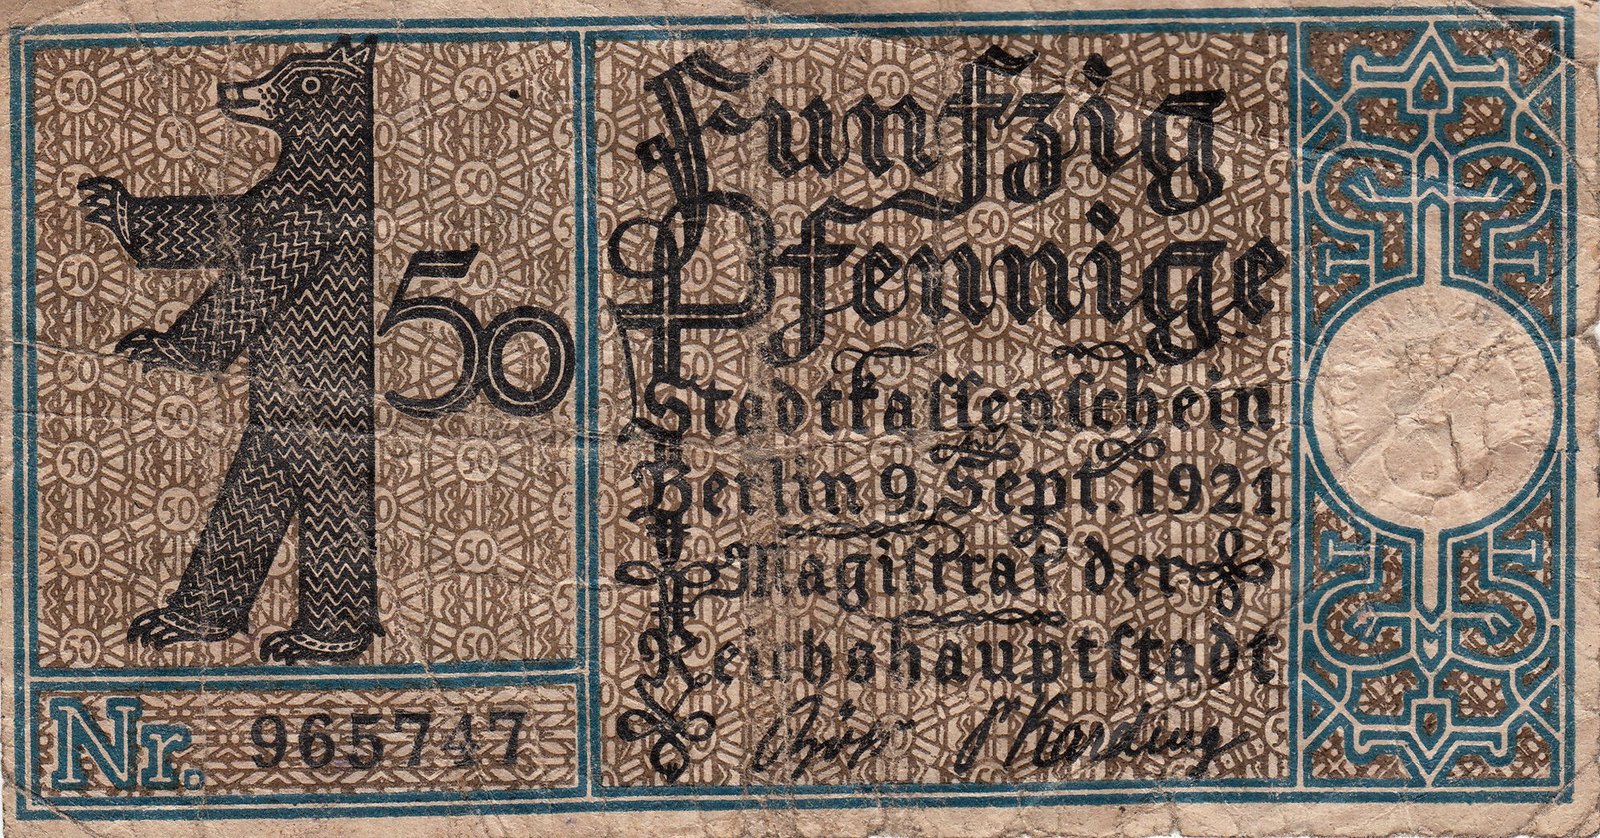 50
Nr. 965747
Funfzig
Pfennige
Stadtkaſſenſchein
Berlin 9. Sept. 1921
Magiſtrat der
Reichshauptſtadt